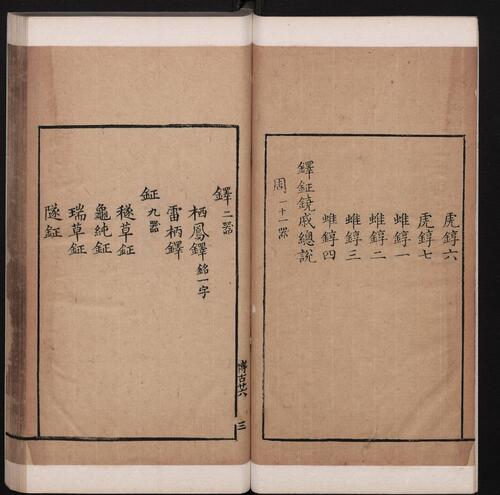 虎錞六
虎錞七
蜼錞一
蜼錞二
蜼錞三
蜼錞四
鐸鉦鐃戚總說
周一十一器
博古廿六
三
鐸二器
栖鳳鐸銘一字
雷柄鐸
鉦九器
穟草鉦
龜純鉦
瑞草鉦
隧鉦